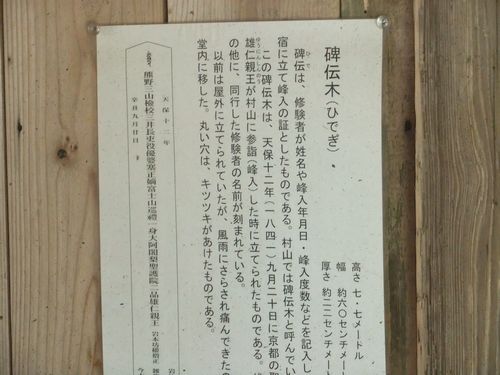 碑伝木(ひでぎ)
高さ 七・七メートル
幅 約六〇センチメー
厚さ 約二二センチメート
碑伝は、修験者が姓名や峰入年月日・峰入度数などを記入し
宿に立て峰入の証としたものである。村山では碑伝木と呼んでい
この碑伝木は、天保十二年(一八四一)九月二十日に京都の
雄仁親王が村山に参詣(峰入)した時に立てられたものである。
の他に、同行した修験者の名前が刻まれている。
以前は屋外に立てられていたが、風雨にさらされ痛んできた
堂内に移した。丸い穴は、キツツキがあけたものである。
天保十二年
熊野三山検校三井長吏役優婆塞正嫡富士山巡禮一身大阿闍梨聖護院二品雄仁親王
辛丑九月廿日